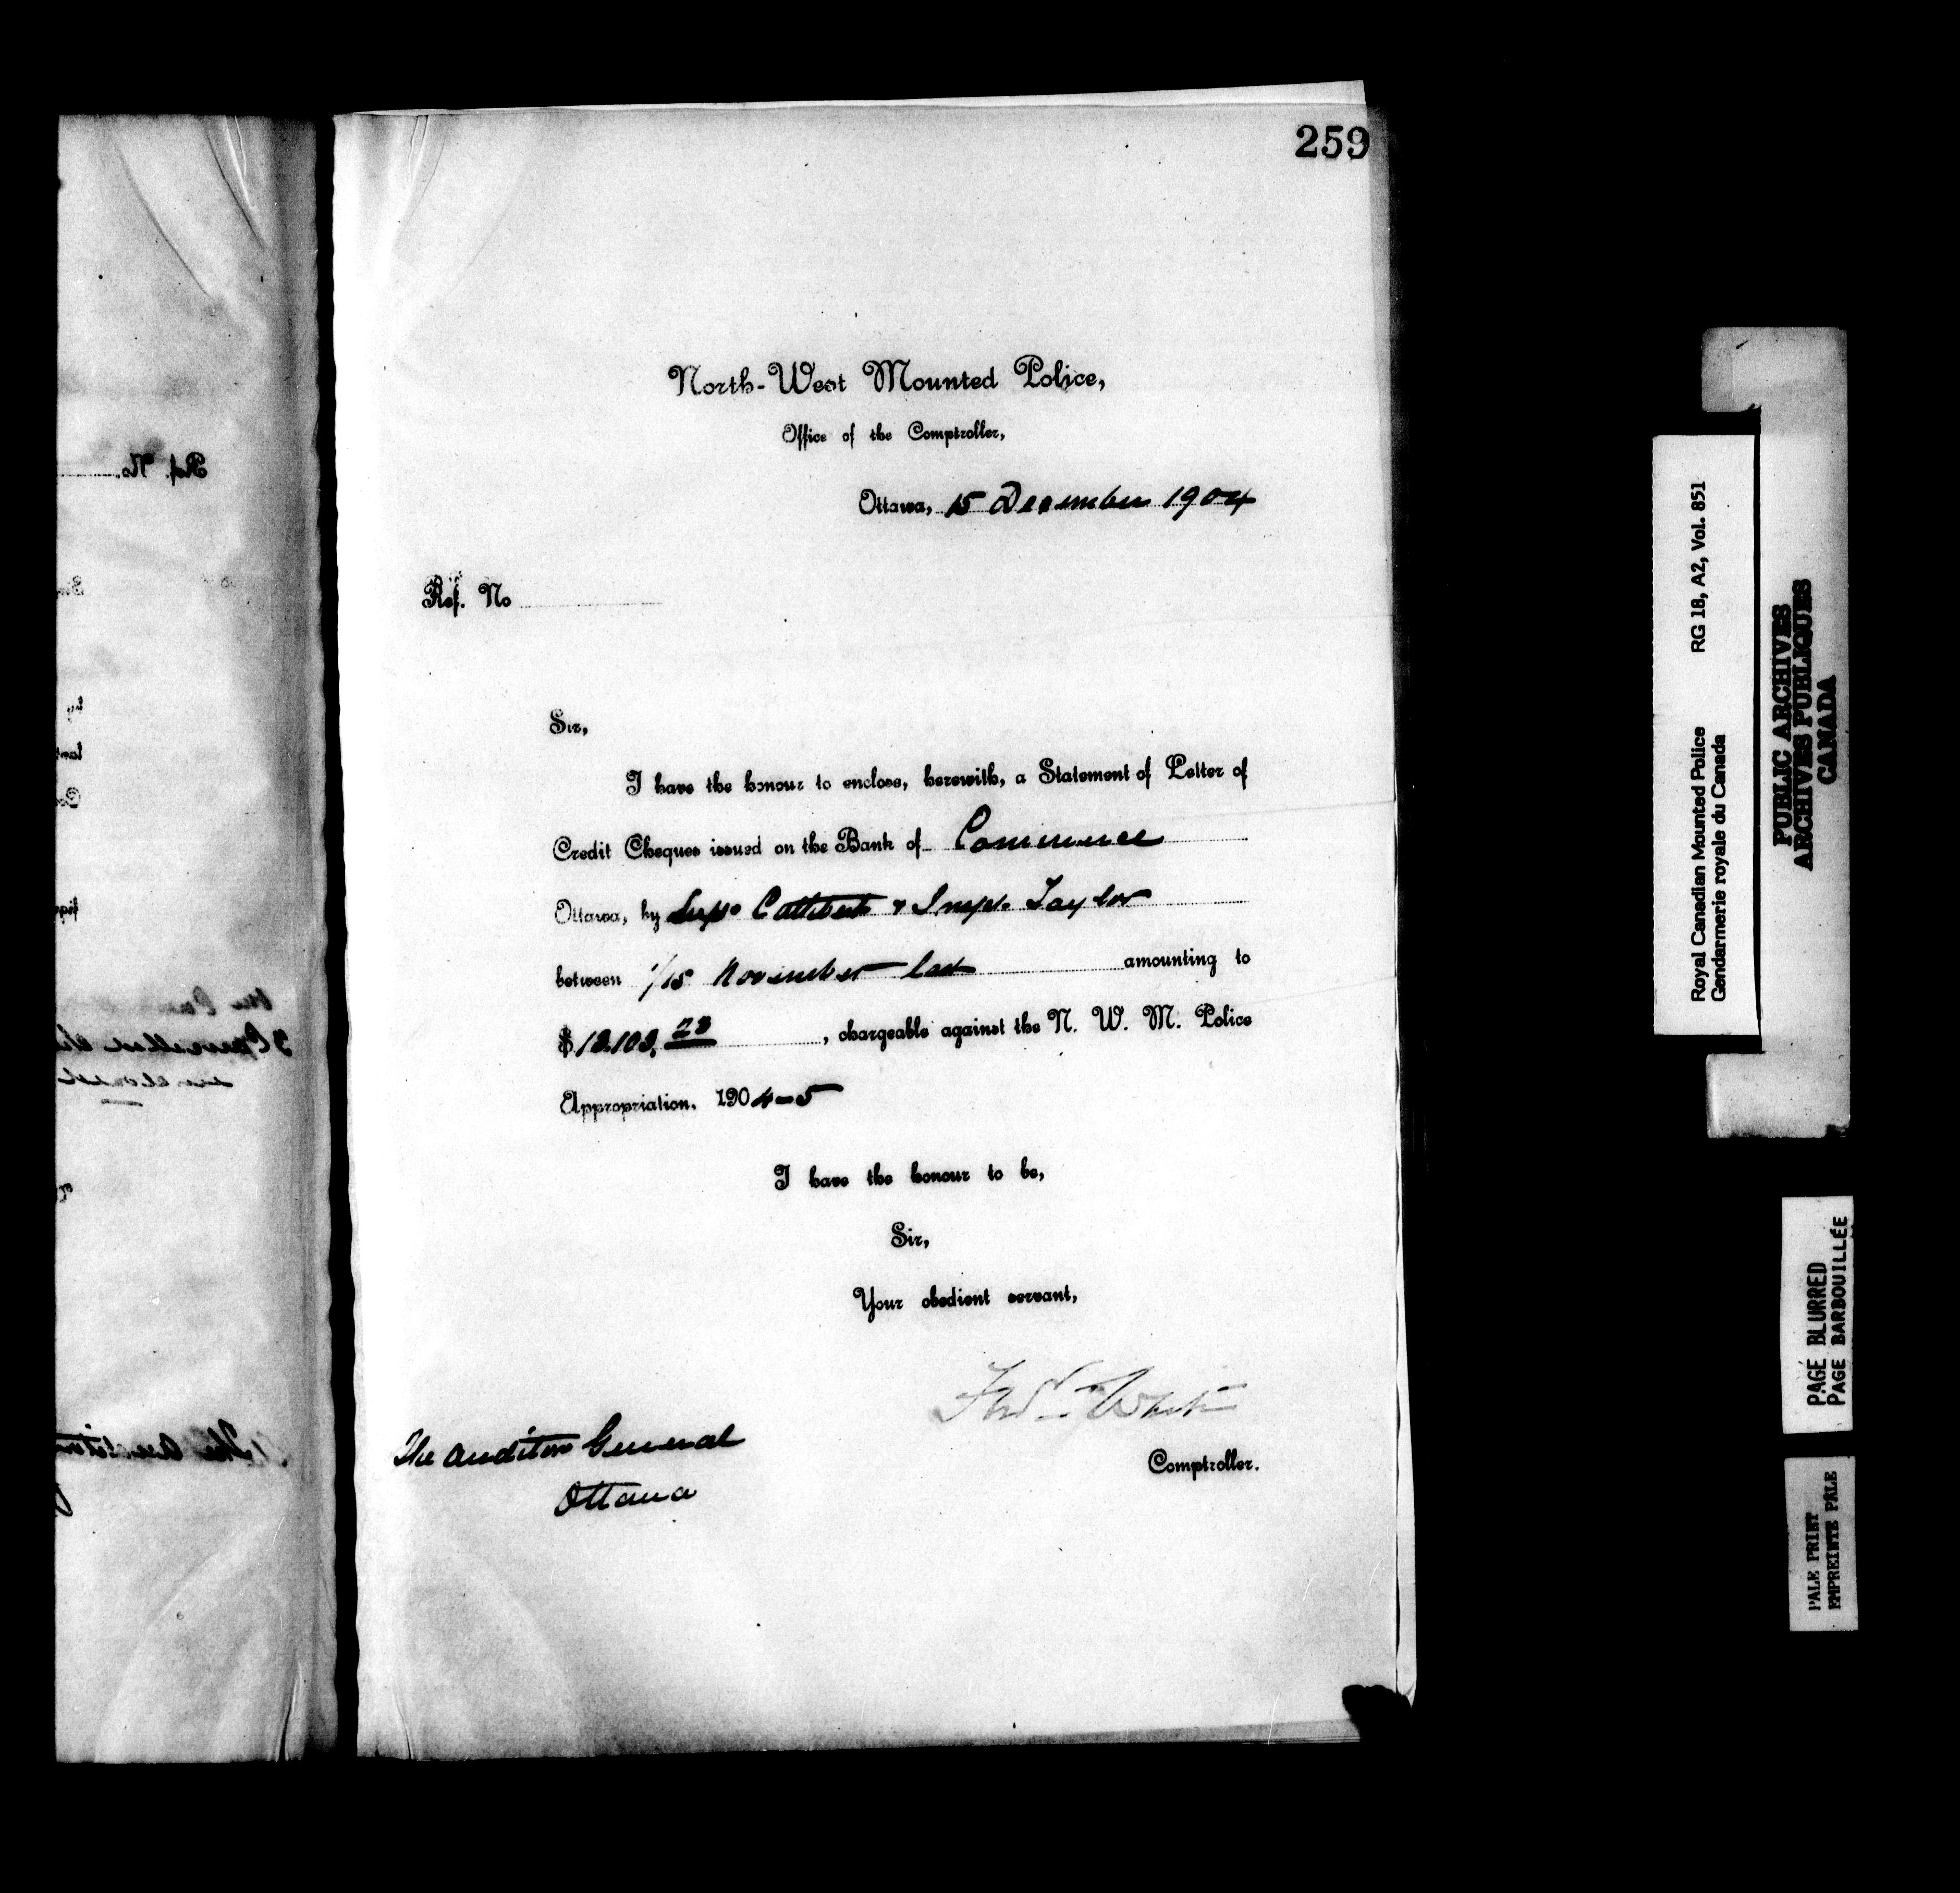 259
North-West Mounted Police,
Office of the Comptroller,
Ottawa, 15 December 1904
Ref. No
Sir,
I have the honour to enclose, herewith, a Statement of Letter of
Credit Cheques issued on the Bank of Commerce
Ottawa, by Supt Cuthbert & Inspr. Taylor
between 1/15 November last amounting to
$ , chargeable against the N. W. M. Police
Appropriation. 1904-5
I have the honour to be,
Sir,
Your obedient servant,
Fred White
Comptroller.
The Auditor General
Ottawa
Ref. No.
Royal Canadian Mounted Police RG 18, A2, Vol. 851
Gendarmerie royale du Canada
PUBLIC ARCHIVES
ARCHIVES PUBLIQUES
CANADA
PAGE BLURRED
PAGE BARBOUILLÉE
PALE PRINT
EMPREINTE PÂLE